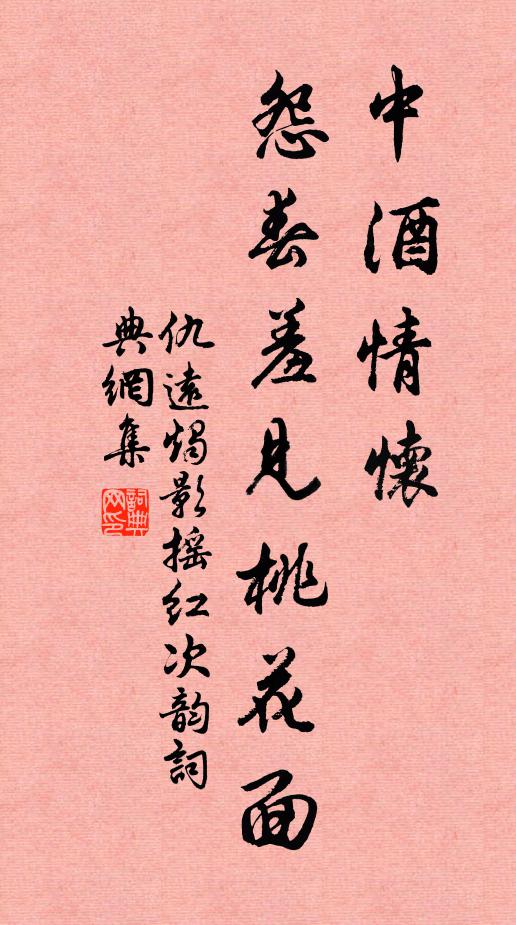 中酒情懷
怨春羞見桃花面
仇遠燭影摇红次韵詞
典網集
詞典網印